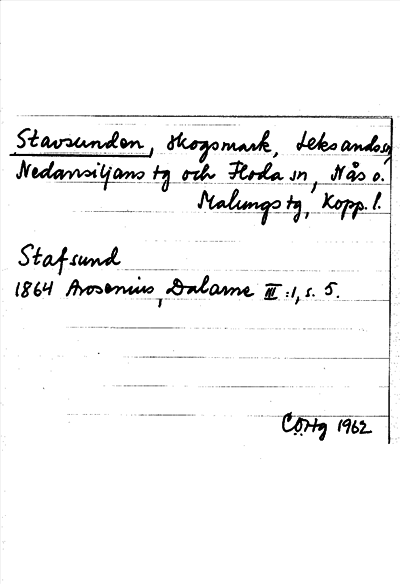 Stavsunden, skogsmark, Leksands sn
Nedansiljans tg och Floda sn, Nås o.
Malungs tg, Kopp. l.
Stafsund
1864 Arosenius, Dalarne III:1, s. 5.
1962